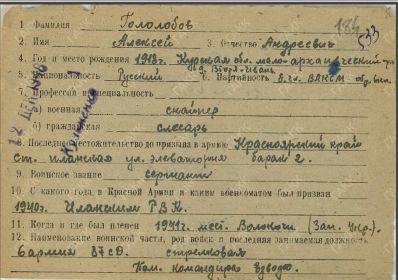 184
533
1 Фамилия Гололобов
2. Имя Алексей 3. Отчество Андреевич
4. Год и место рождения 1918г. Курская обл. мало-архангельский р-н
5. Национальность Русский 6. Партийность В.чл. ВЛКСМ
7. Профессия и специальность
а) военная снайпер
б) гражданская слесарь
8. Последнее местожительство до призыва в армию Красноярский край
ст. иланская ул. элеваторная барак 2.
9. Воинское звание сержант
10. С какого года в Красной Армии и каким военкоматом был призван
1940г. Иланским РВК.
11. Когда и где был пленен 1941г. мест. (Зап. Укр.).
12. Наименование воинской части, род войск и последняя занимаемая должность
6 армия 87 сд. стрелковая
Пом. командира взвода.